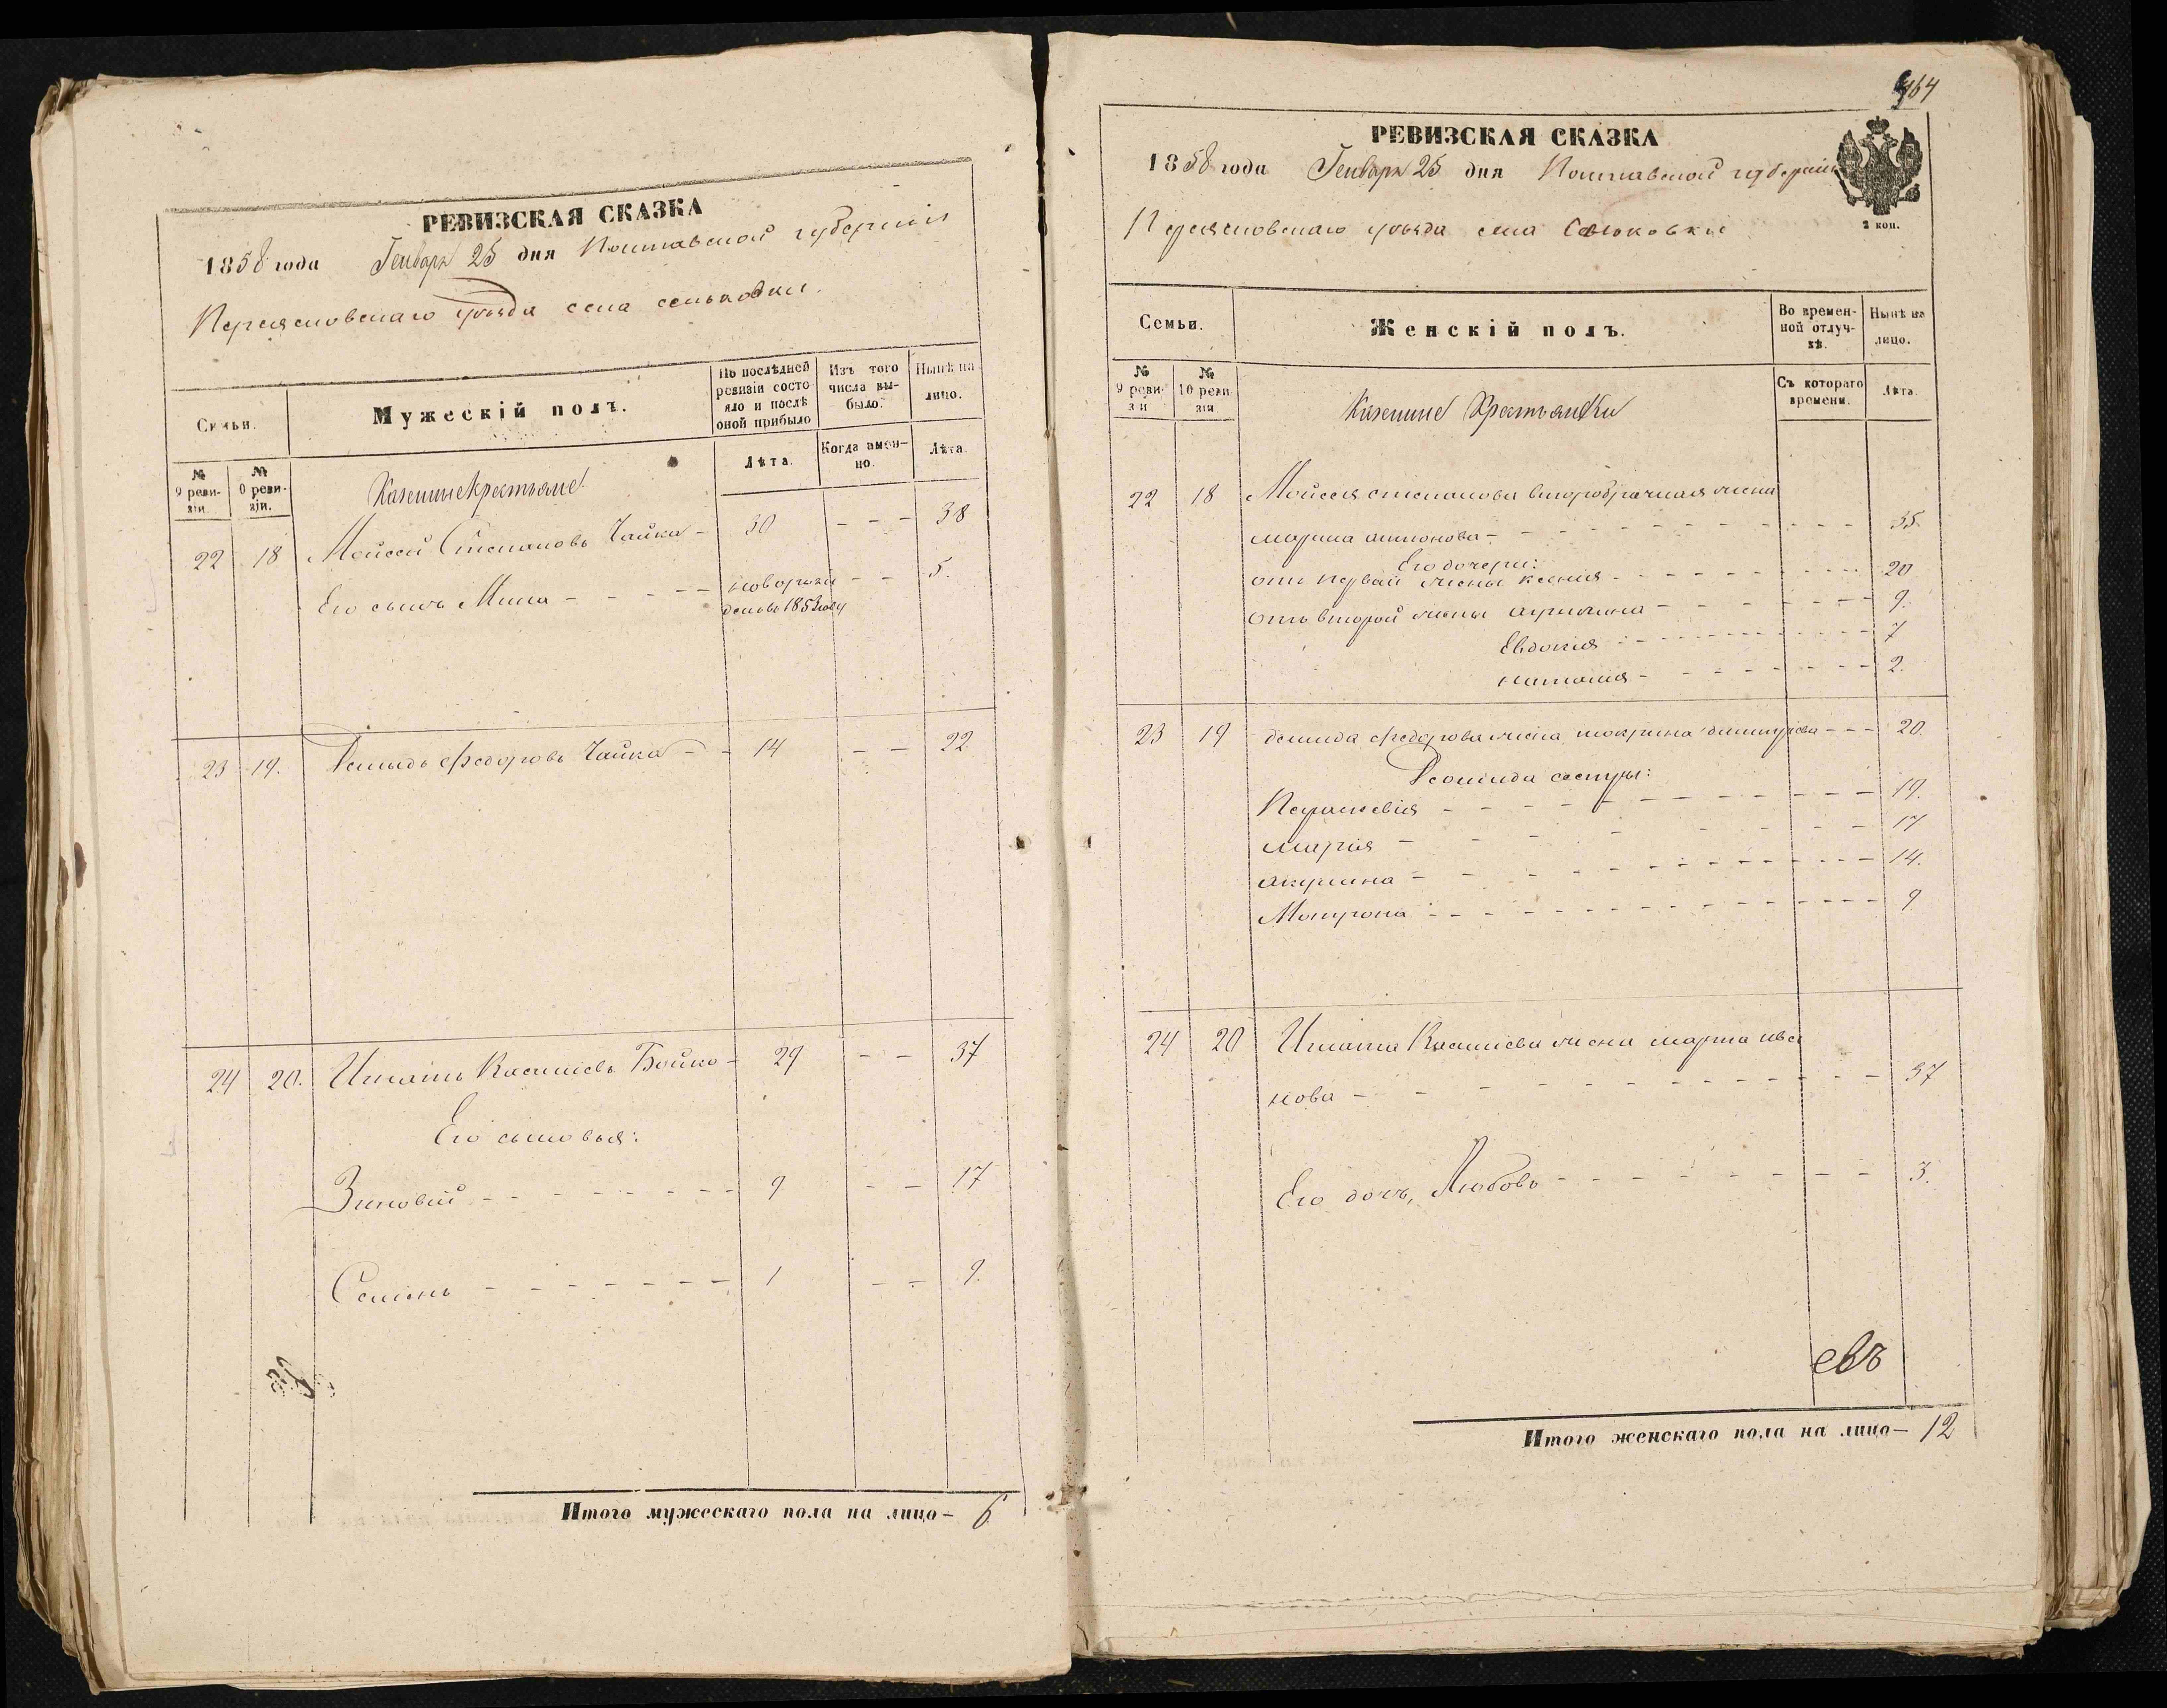 РЕВИЗСКАЯ СКАЗКА
1858 года Генваря 25 дня Полтавской губерніи
Переяславскаго уѣзда села сеньковки.
Семьи.
Мужескій полъ.
По послѣдней ревизіи состояло и послѣ оной прибыло
Изъ того числа выбыло.
Нынѣ на лицо.
№ 9 ревизіи.
№ 0 ревизіи.
Лѣта.
Когда имянно.
Лѣта.
Казенные Крестьяне
22 18 Мойсей Степановъ Чайка - 30 - - - 38
Его сынъ Мина - - - - - новорожденъ въ 1852 году - - 5.
23 19. Демидъ Федоровъ Чайка - - 14 - - 22
24 20. Игнатъ Касьяновъ Бойко - 29 - - 37
Его сыновья:
Зиновій - - - - - - - - 9 - - 17
Семенъ - - - - - - - 1 - - 9.
Итого мужескаго пола на лицо - 6
464
РЕВИЗСКАЯ СКАЗКА
1858 года Генваря 25 дня Полтавской губерніи
2 коп.
Переяславскаго уѣзда села Сеньковки
Семьи.
Женскій полъ.
Во временной отлучкѣ.
Нынѣ на лицо.
№ 9 ревизи
№ 10 ревизіи
Съ котораго времени.
Лѣта.
Казенные Крестьянки
22 18 Мойсея степанова второбрачная жена
марина антонова - - - - - - - - - - - - 35.
Его дочери:
отъ первой жены ксенія - - - - - - - - - - 20
отъ второй жены - - - - - - - - 9.
Евдокія - - - - - - - - - - 7
наталія - - - - - - - - 2.
23 19 демида федорова жена димитріева - - - 20.
Демида сестры:
Параскевія - - - - - - - - - - - - 19.
марія - - - - - - - - 17
акулина - - - - - - - - - - - - 14.
Матрона - - - - - - - - - - - - - - 9
24 20 Игната Касьянова жена марта ива
нова - - - - - - - - - - - - - 37
Его дочь, Любовь - - - - - - - - - 3.
евъ
Итого женскаго пола на лицо - 12